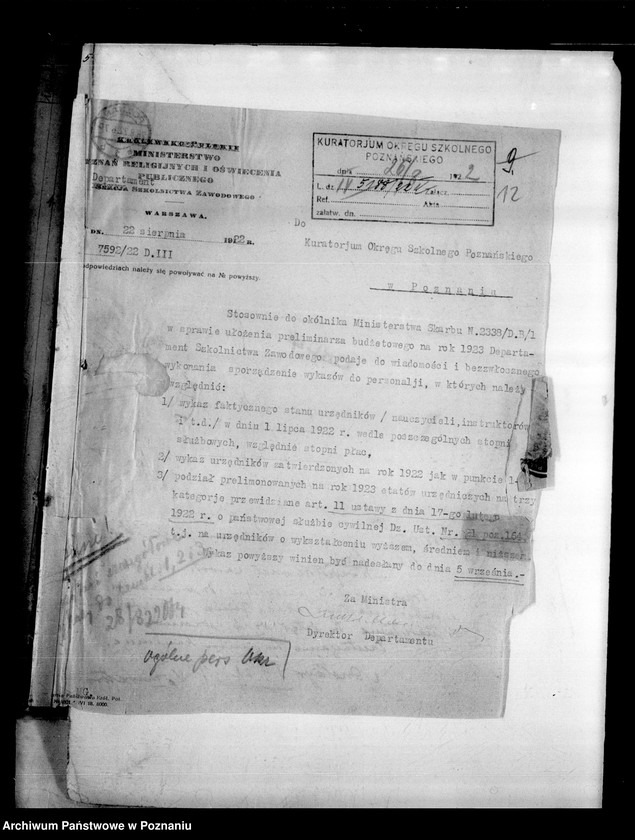 KRÓLEWSKO-POLSKIE
MINISTERSTWO
WYZNAŃ RELIGIJNYCH I OŚWIECENIA
PUBLICZNEGO
Departament
SEKCJA SZKOLNICTWA ZAWODOWEGO
WARSZAWA.
DN. 22 sierpnia 1922 R.
7592/22 D.III
odpowiedziach należy się powoływać na № powyższy.
KURATORJUM OKRĘGU SZKOLNEGO
POZNAŃSKIEGO
dnia 26/ 192 2
L. dz. IV Załącz.
Ref. Akta
załatw. dn.
9
12
Do
Kuratorjum Okręgu Szkolnego Poznańskiego
w Poznaniu
Stosownie do okólnika Ministerstwa Skarbu N.2338/D.B/1
w sprawie ułożenia preliminarza budżetowego na rok 1923 Departa-
ment Szkolnictwa Zawodowego podaje do wiadomości i bezzwłocznego
wykonania sporządzenie wykazów do personalji, w których należy
uwzględnić:
1/ wykaz faktycznego stanu urzędników / nauczycieli, instruktorów
i t.d./ w dniu 1 lipca 1922 r. wedle poszczególnych stopni
służbowych, względnie stopni płac,
2/ wykaz urzędników zatwierdzonych na rok 1922 jak w punkcie 1-
3/ podział prelimonowanych na rok 1923 etatów urzędniczych na trzy
kategorje przewidziane art. 11 ustawy z dnia 17-go lutego
1922 r. o państwowej służbie cywilnej Dz. Ust. Nr. poz. 164
t.j. na urzędników o wykształceniu wyższem, średniem i niższem.
Wykaz powyższy winien być nadesłany do dnia 5 września.-
Za Ministra
Dyrektor Departamentu
28/8 22
ogólne pers
Archiwum Państwowe w Poznaniu